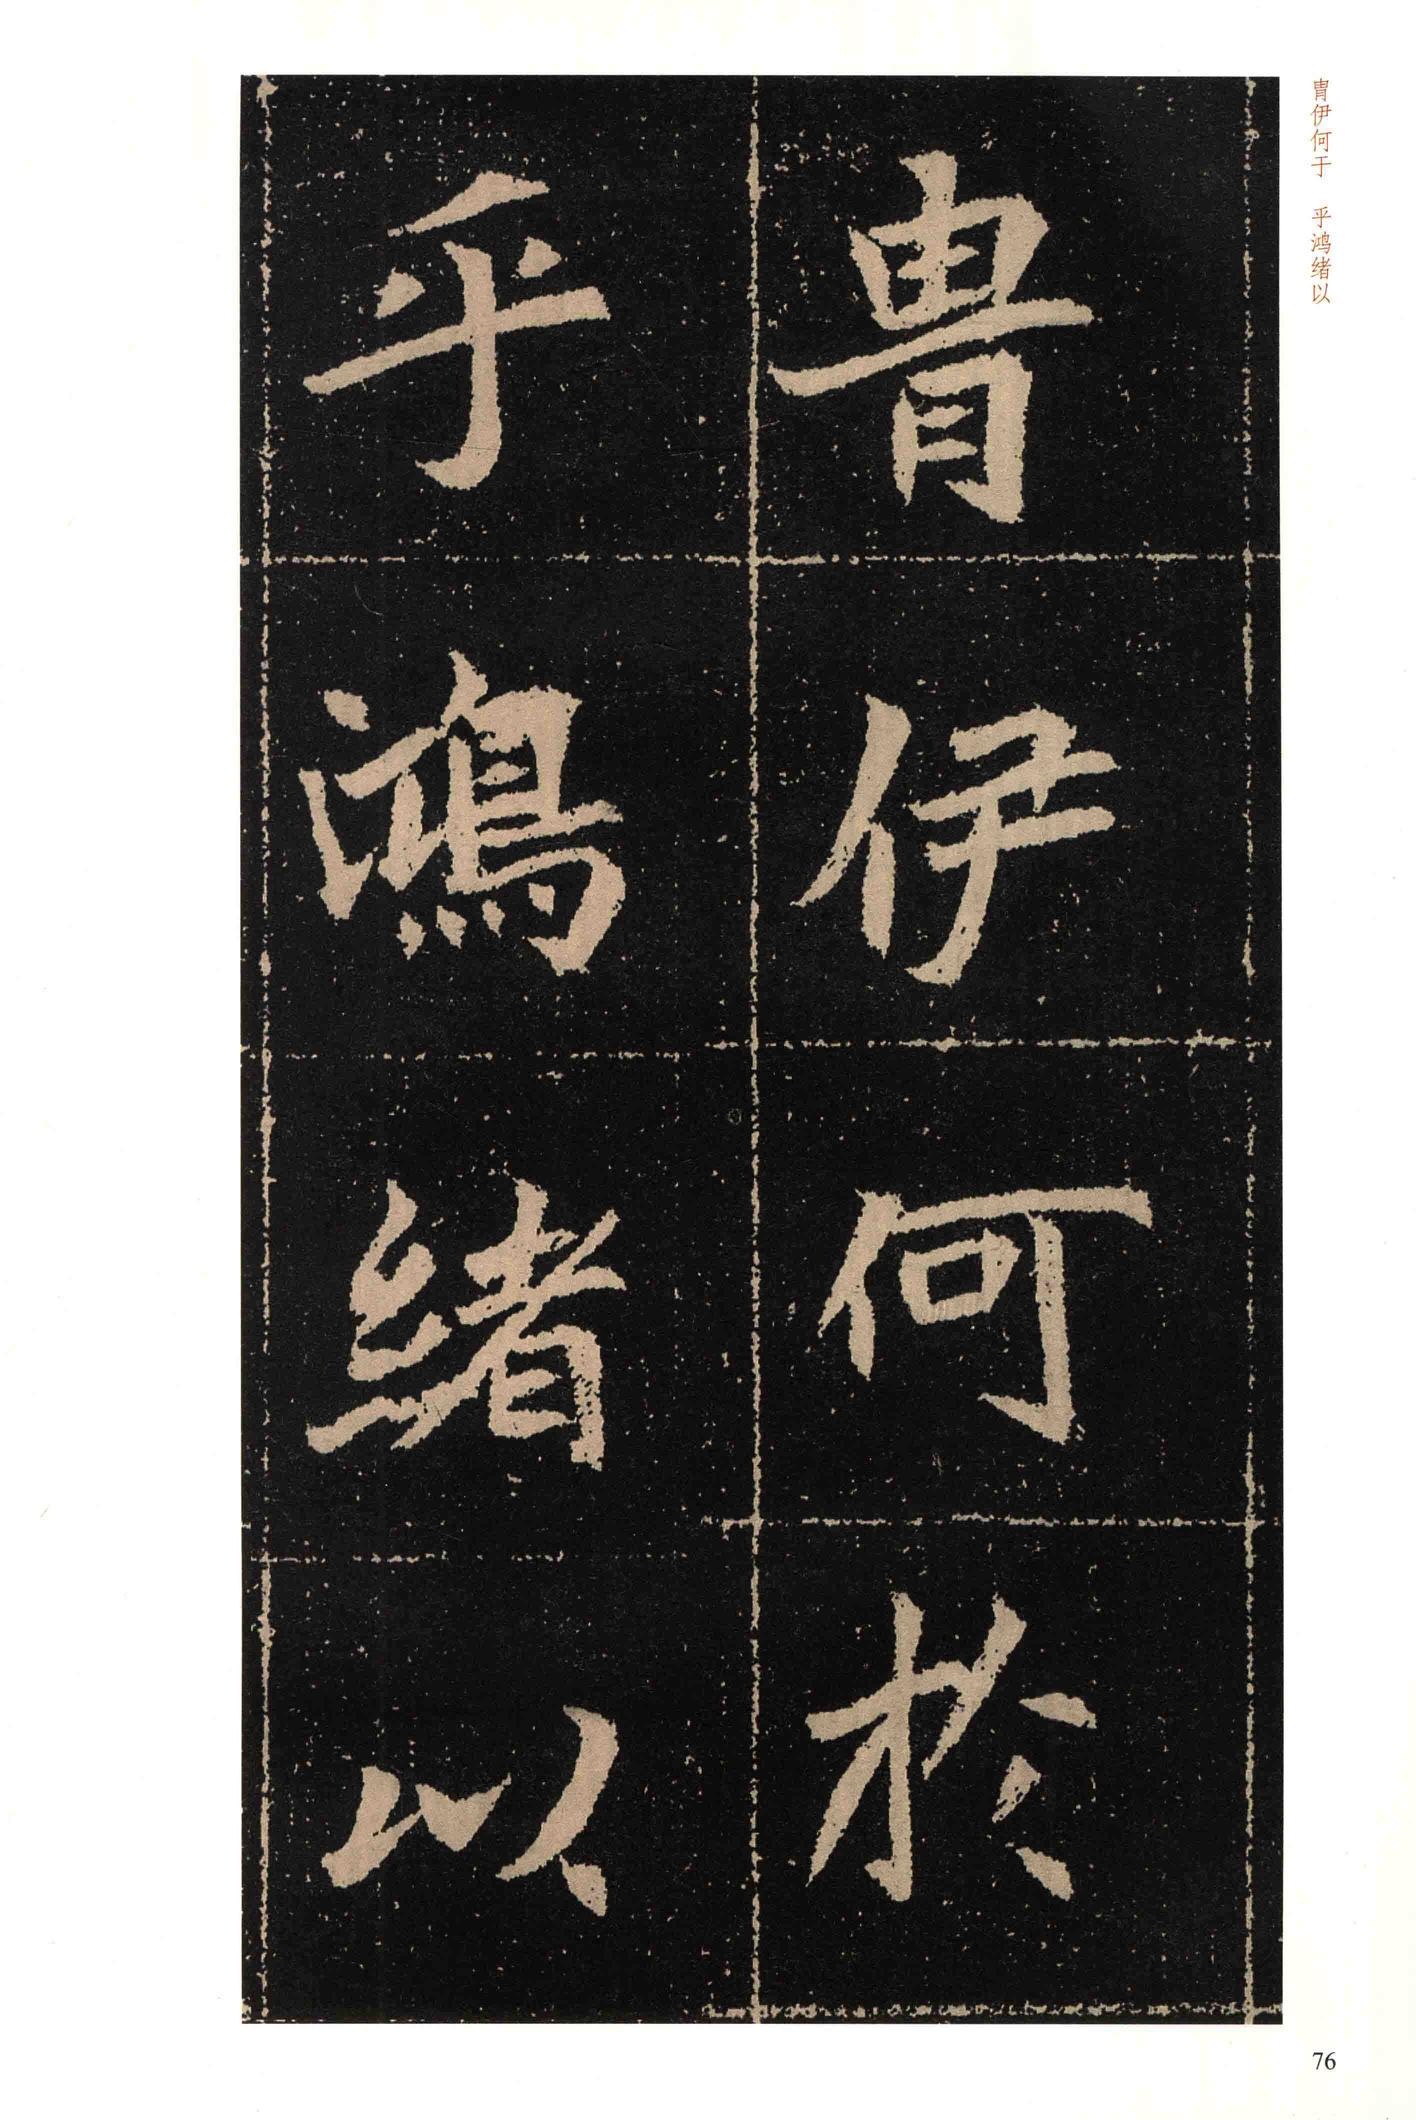 胄伊何于　乎鸿绪以
胄伊何於
乎鴻緒以
76